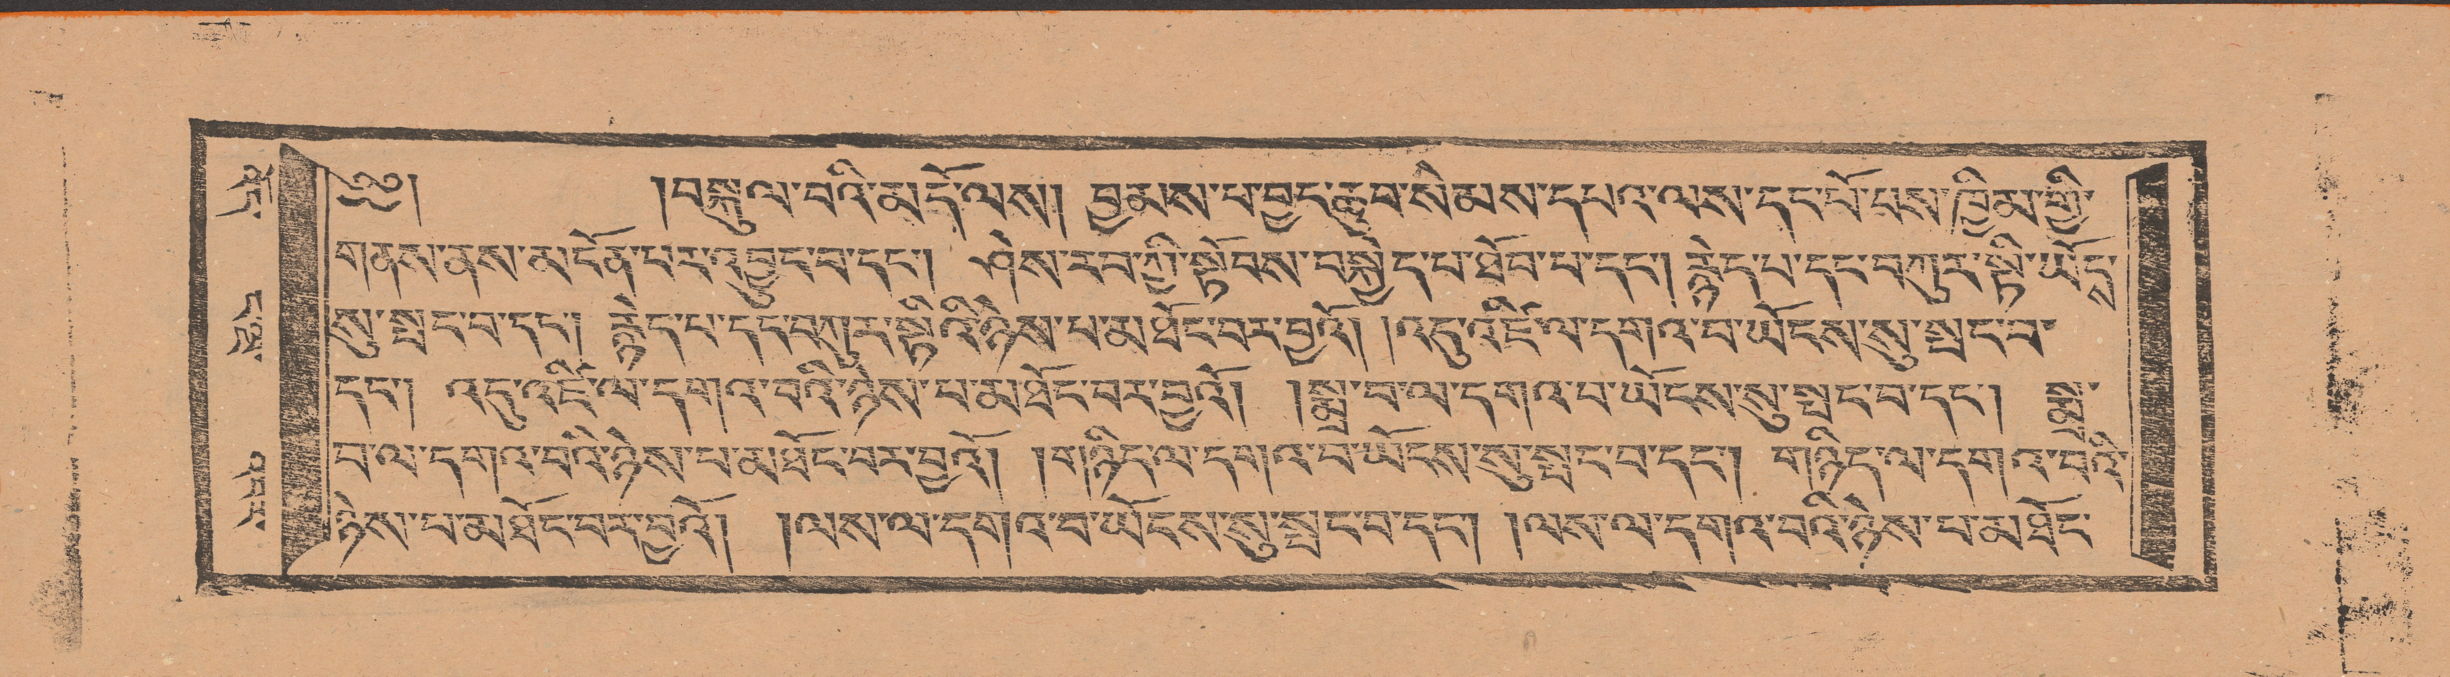 ༄༅། །བསྐུལ་བའི་མདོ་ལས། བྱམས་པ་བྱང་ཆུབ་སེམས་དཔའ་ལས་དང་པོ་པས་ཁྱིམ་གྱི་
གནས་ནས་མངོན་པར་འབྱུང་བ་དང་། ཤེས་རབ་ཀྱི་སྟོབས་བསྐྱེད་པ་ཐོབ་པ་དང་། རྙེད་པ་དང་བཀུར་སྟི་ཡོངས་
སུ་སྤང་བ་དང་། རྙེད་པ་དང་བཀུར་སྟིའི་ཉེས་པ་མཐོང་བར་བྱའོ། །འདུ་འཛི་ལ་དགའ་བ་ཡོངས་སུ་སྤང་བ་
དང་། འདུ་འཛི་ལ་དགའ་བའི་ཉེས་པ་མཐོང་བར་བྱའོ། །སྨྲ་བ་ལ་དགའ་བ་ཡོངས་སུ་སྤང་བ་དང་། སྨྲ་
བ་ལ་དགའ་བའི་ཉེས་པ་མཐོང་བར་བྱའོ། །གཉིད་ལ་དགའ་བ་ཡོངས་སུ་སྤང་བ་དང་། གཉིད་ལ་དགའ་བའི་
ཉེས་པ་མཐོང་བར་བྱའོ། །ལས་ལ་དགའ་བ་ཡོངས་སུ་སྤང་བ་དང་། །ལས་ལ་དགའ་བའི་ཉེས་པ་མཐོང་